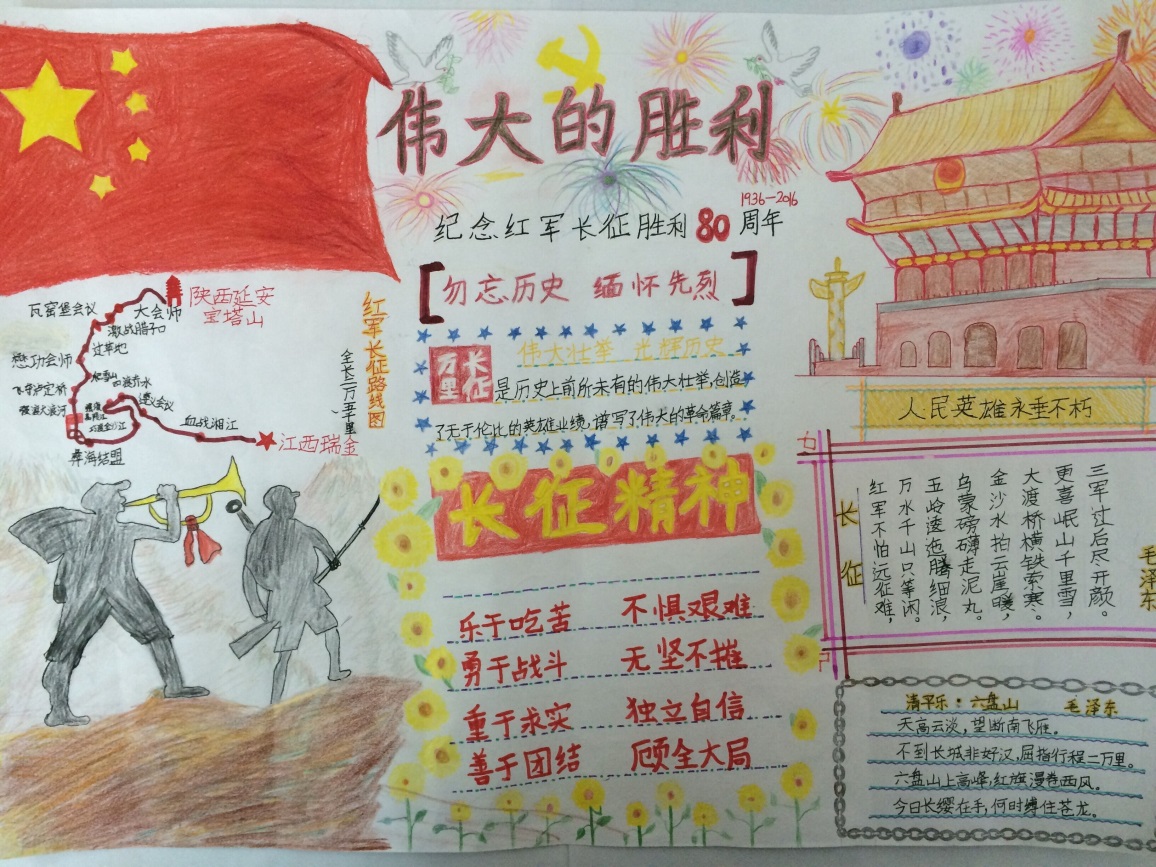 伟大的胜利
1936—2016
纪念红军长征胜利80周年
【勿忘历史 缅怀先烈】
伟大壮举 光辉历史
长征
万里
是历史上前所未有的伟大壮举,创造
了无于伦比的英雄业绩,谱写了伟大的革命篇章。
长征精神
乐于吃苦 不惧艰难
勇于战斗 无坚不摧
重于求实 独立自信
善于团结 顾全大局
红军长征路线图
全长二万五千里
陕西延安
宝塔山
瓦窑堡会议
大会师
激战腊子口
过草地
懋功会师
爬雪山
飞夺泸定桥
四渡赤水
强渡大渡河
遵义会议
巧渡金沙江
血战湘江
江西瑞金
彝海结盟
人民英雄永垂不朽
长征
毛泽东
红军不怕远征难,
万水千山只等闲。
五岭逶迤腾细浪,
乌蒙磅礴走泥丸。
金沙水拍云崖暖,
大渡桥横铁索寒。
更喜岷山千里雪,
三军过后尽开颜。
清平乐:六盘山 毛泽东
天高云淡,望断南飞雁。
不到长城非好汉,屈指行程二万里。
六盘山上高峰,红旗漫卷西风。
今日长缨在手,何时缚住苍龙。